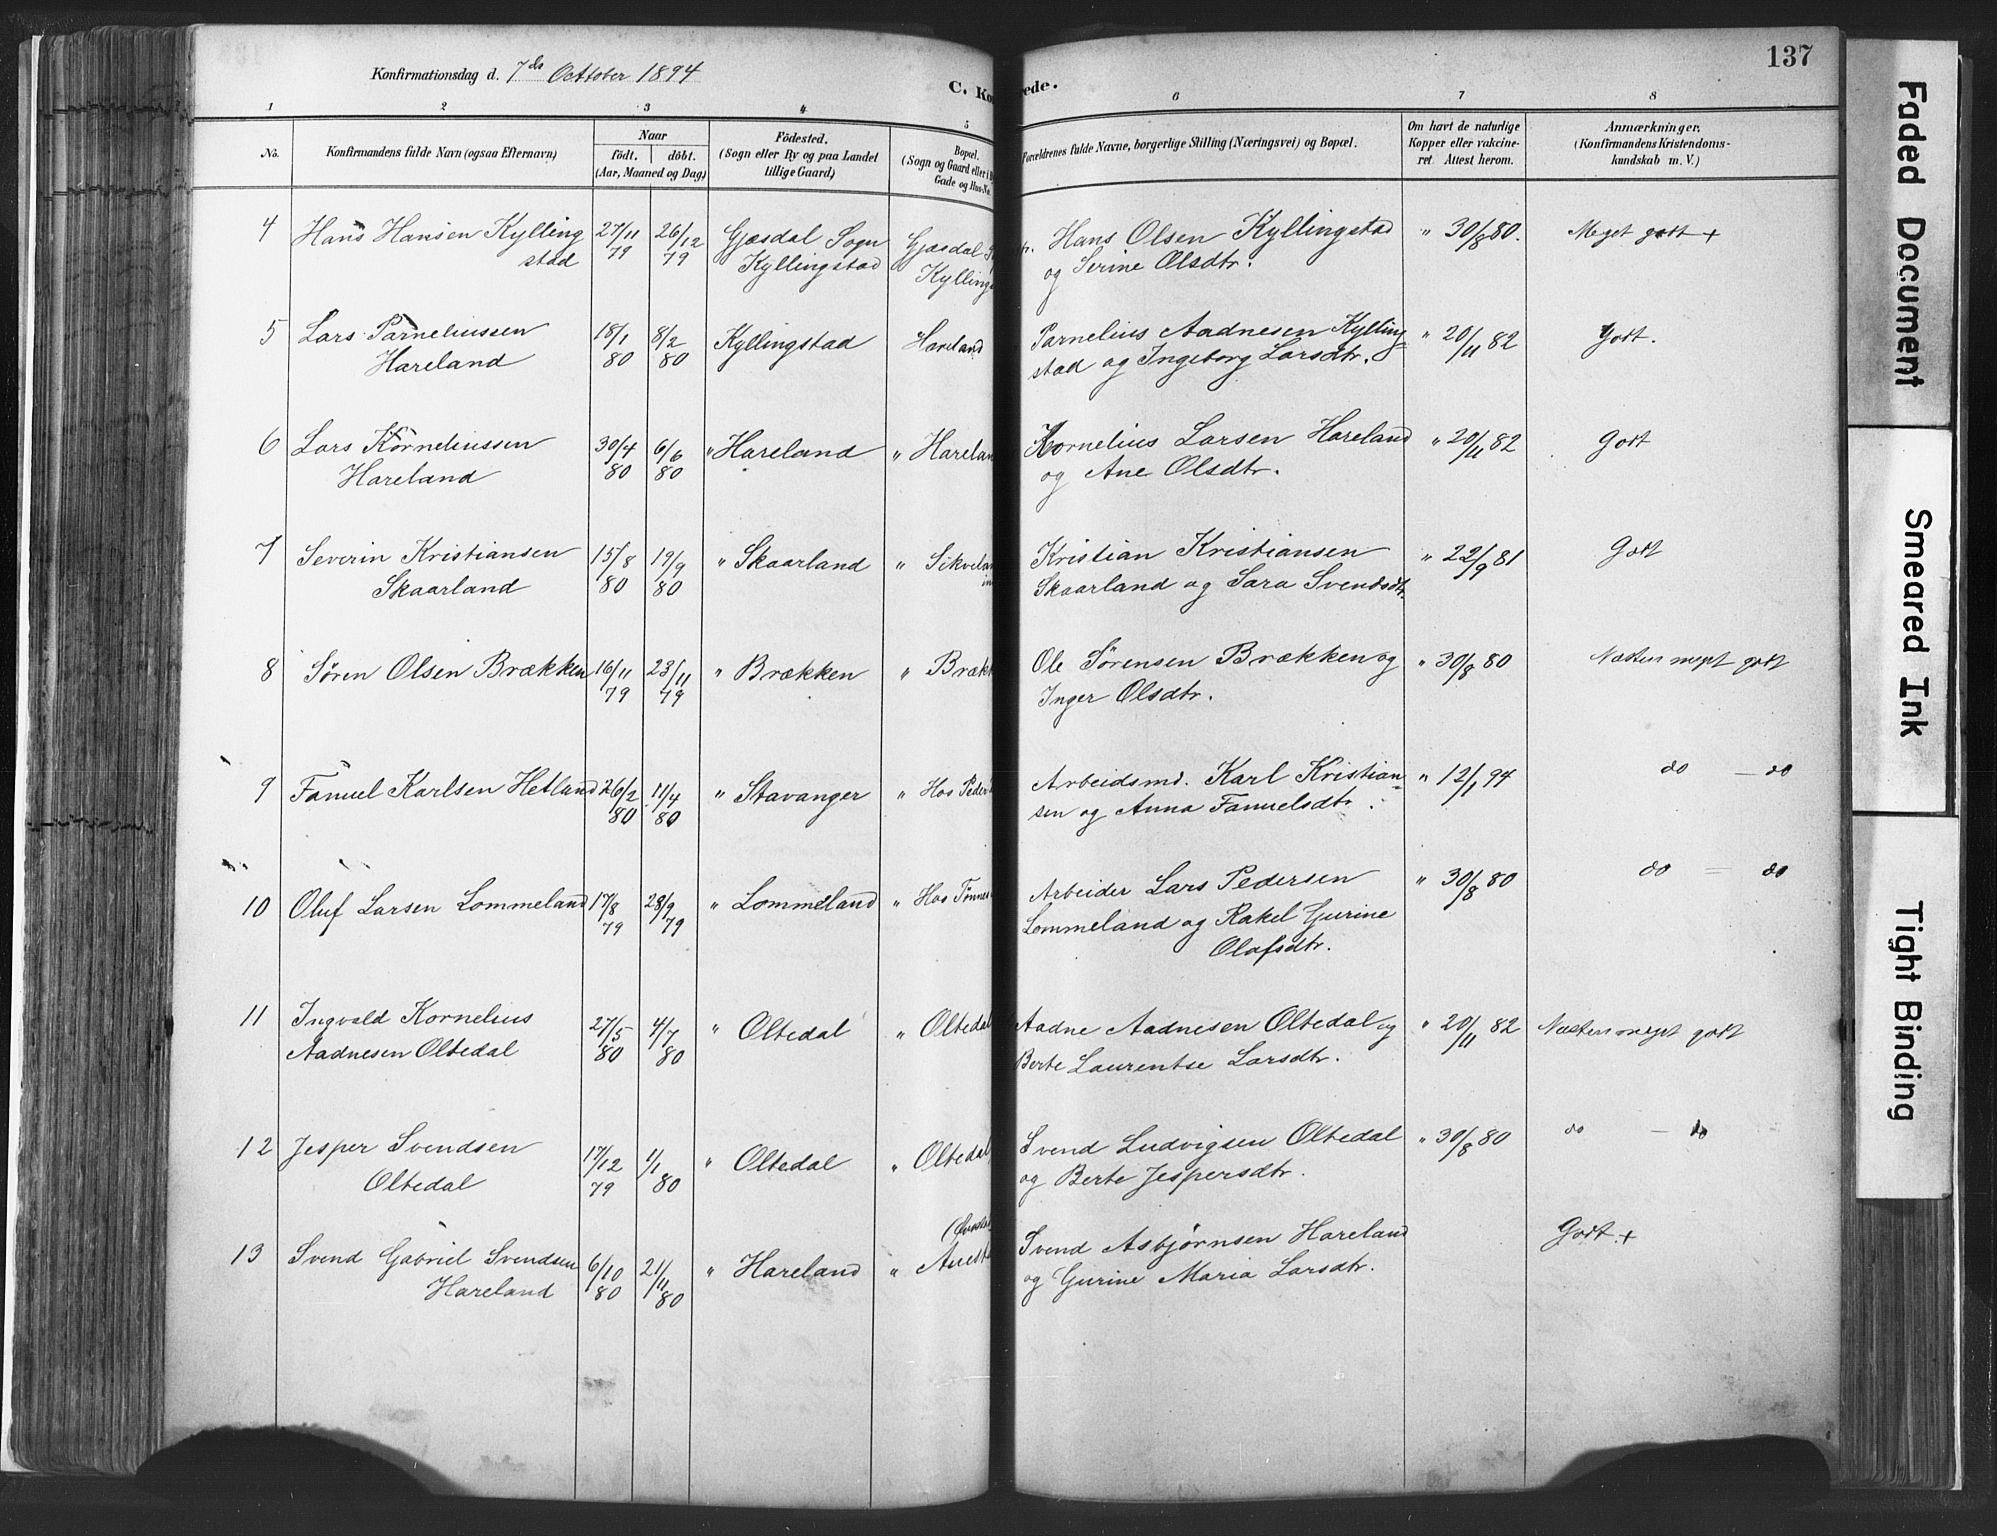 137
Konfirmationsdag d. 7de October 1894
C. Ko rede.
1 2 3 4 5 6 7 8
No.
Konfirmandens fulde Navn (ogsaa Efternavn)
Naar
födt. döbt.
(Aar, Maaned og Dag)
Födested.
(Sogn eller By og paa Landet
tillige Gaard)
Bopæl.
(Sogn og Gaard eller i B
Gade og Hus-No.
Forældrenes fulde Navne, borgerlige Stilling (Næringsvei) og Bopæl.
Om havt de naturlige
Kopper eller vakcine-
ret. Attest herom.
Anmærkninger.
(Konfirmandens Kristendoms-
kundskab m. V.)
4 Hans Hansen Kylling 27/11 26/12 Gjæsdal Sogn Gjæsdal S Hans Olsen Kyllingstad " 30/8 80. Meget godt +
stad 79 79 Kyllingstad Kylling og Serine Olsdtr.
5 Lars Parneliussen 18/1 8/2 Kyllingstad Hareland Parnelius Aadnesen Kylling= " 20/11 82 Godt.
Hareland 80 80 stad og Ingeborg Larsdtr.
6 Lars Korneliussen 30/4 6/6 " Hareland " Harelan Kornelius Larsen Hareland " 20/11 82 Godt
Hareland 80 80 og Ane Olsdtr.
7 Severin Kristiansen 15/8 19/9 " Skaarland " Sikvelan Kristian Kristiansen " 22/9 81 Godt
Skaarland 80 80 in Skaarland og Sara Svendsdtr.
8 Sören Olsen Brækken 16/11 23/11 " Brækken " Brækk Ole Sørensen Brækken og " 30/8 80 Næsten meget godt
79 79 Inger Olsdtr.
9 Fanuel Karlsen Hetland 26/2 11/4 " Stavanger " Hos Peder Arbeidsmd. Karl Kristian= " 12/1 94 do — do
80 80 sen og Anna Fanuelsdtr.
10 Oluf Larsen Lommeland 17/8 28/9 " Lommeland " Hos Tønnes Arbeider Lars Pedersen " 30/8 80 do = do
79 79 Lommeland og Rakel Gurine
Olafsdtr.
11 Ingvald Kornelius 27/5 4/7 " Oltedal " Oltedal Aadne Aadnesen Oltedal og " 20/11 82 Næsten meget godt
Aadnesen Oltedal 80 80 Berte Laurentse Larsdtr.
12 Jesper Svendsen 17/12 1/1 " Oltedal " Oltedal Svend Ludvigsen Oltedal " 30/8 80 do — do
Oltedal 79 80 og Berte Jespersdtr.
13 Svend Gabriel Svendsen 6/10 21/11 " Hareland " Svend Asbjørnsen Hareland Godt. +
Hareland 80 80 og Gurine Maria Larsdtr.
Faded Document
Smeared Ink
Tight Binding